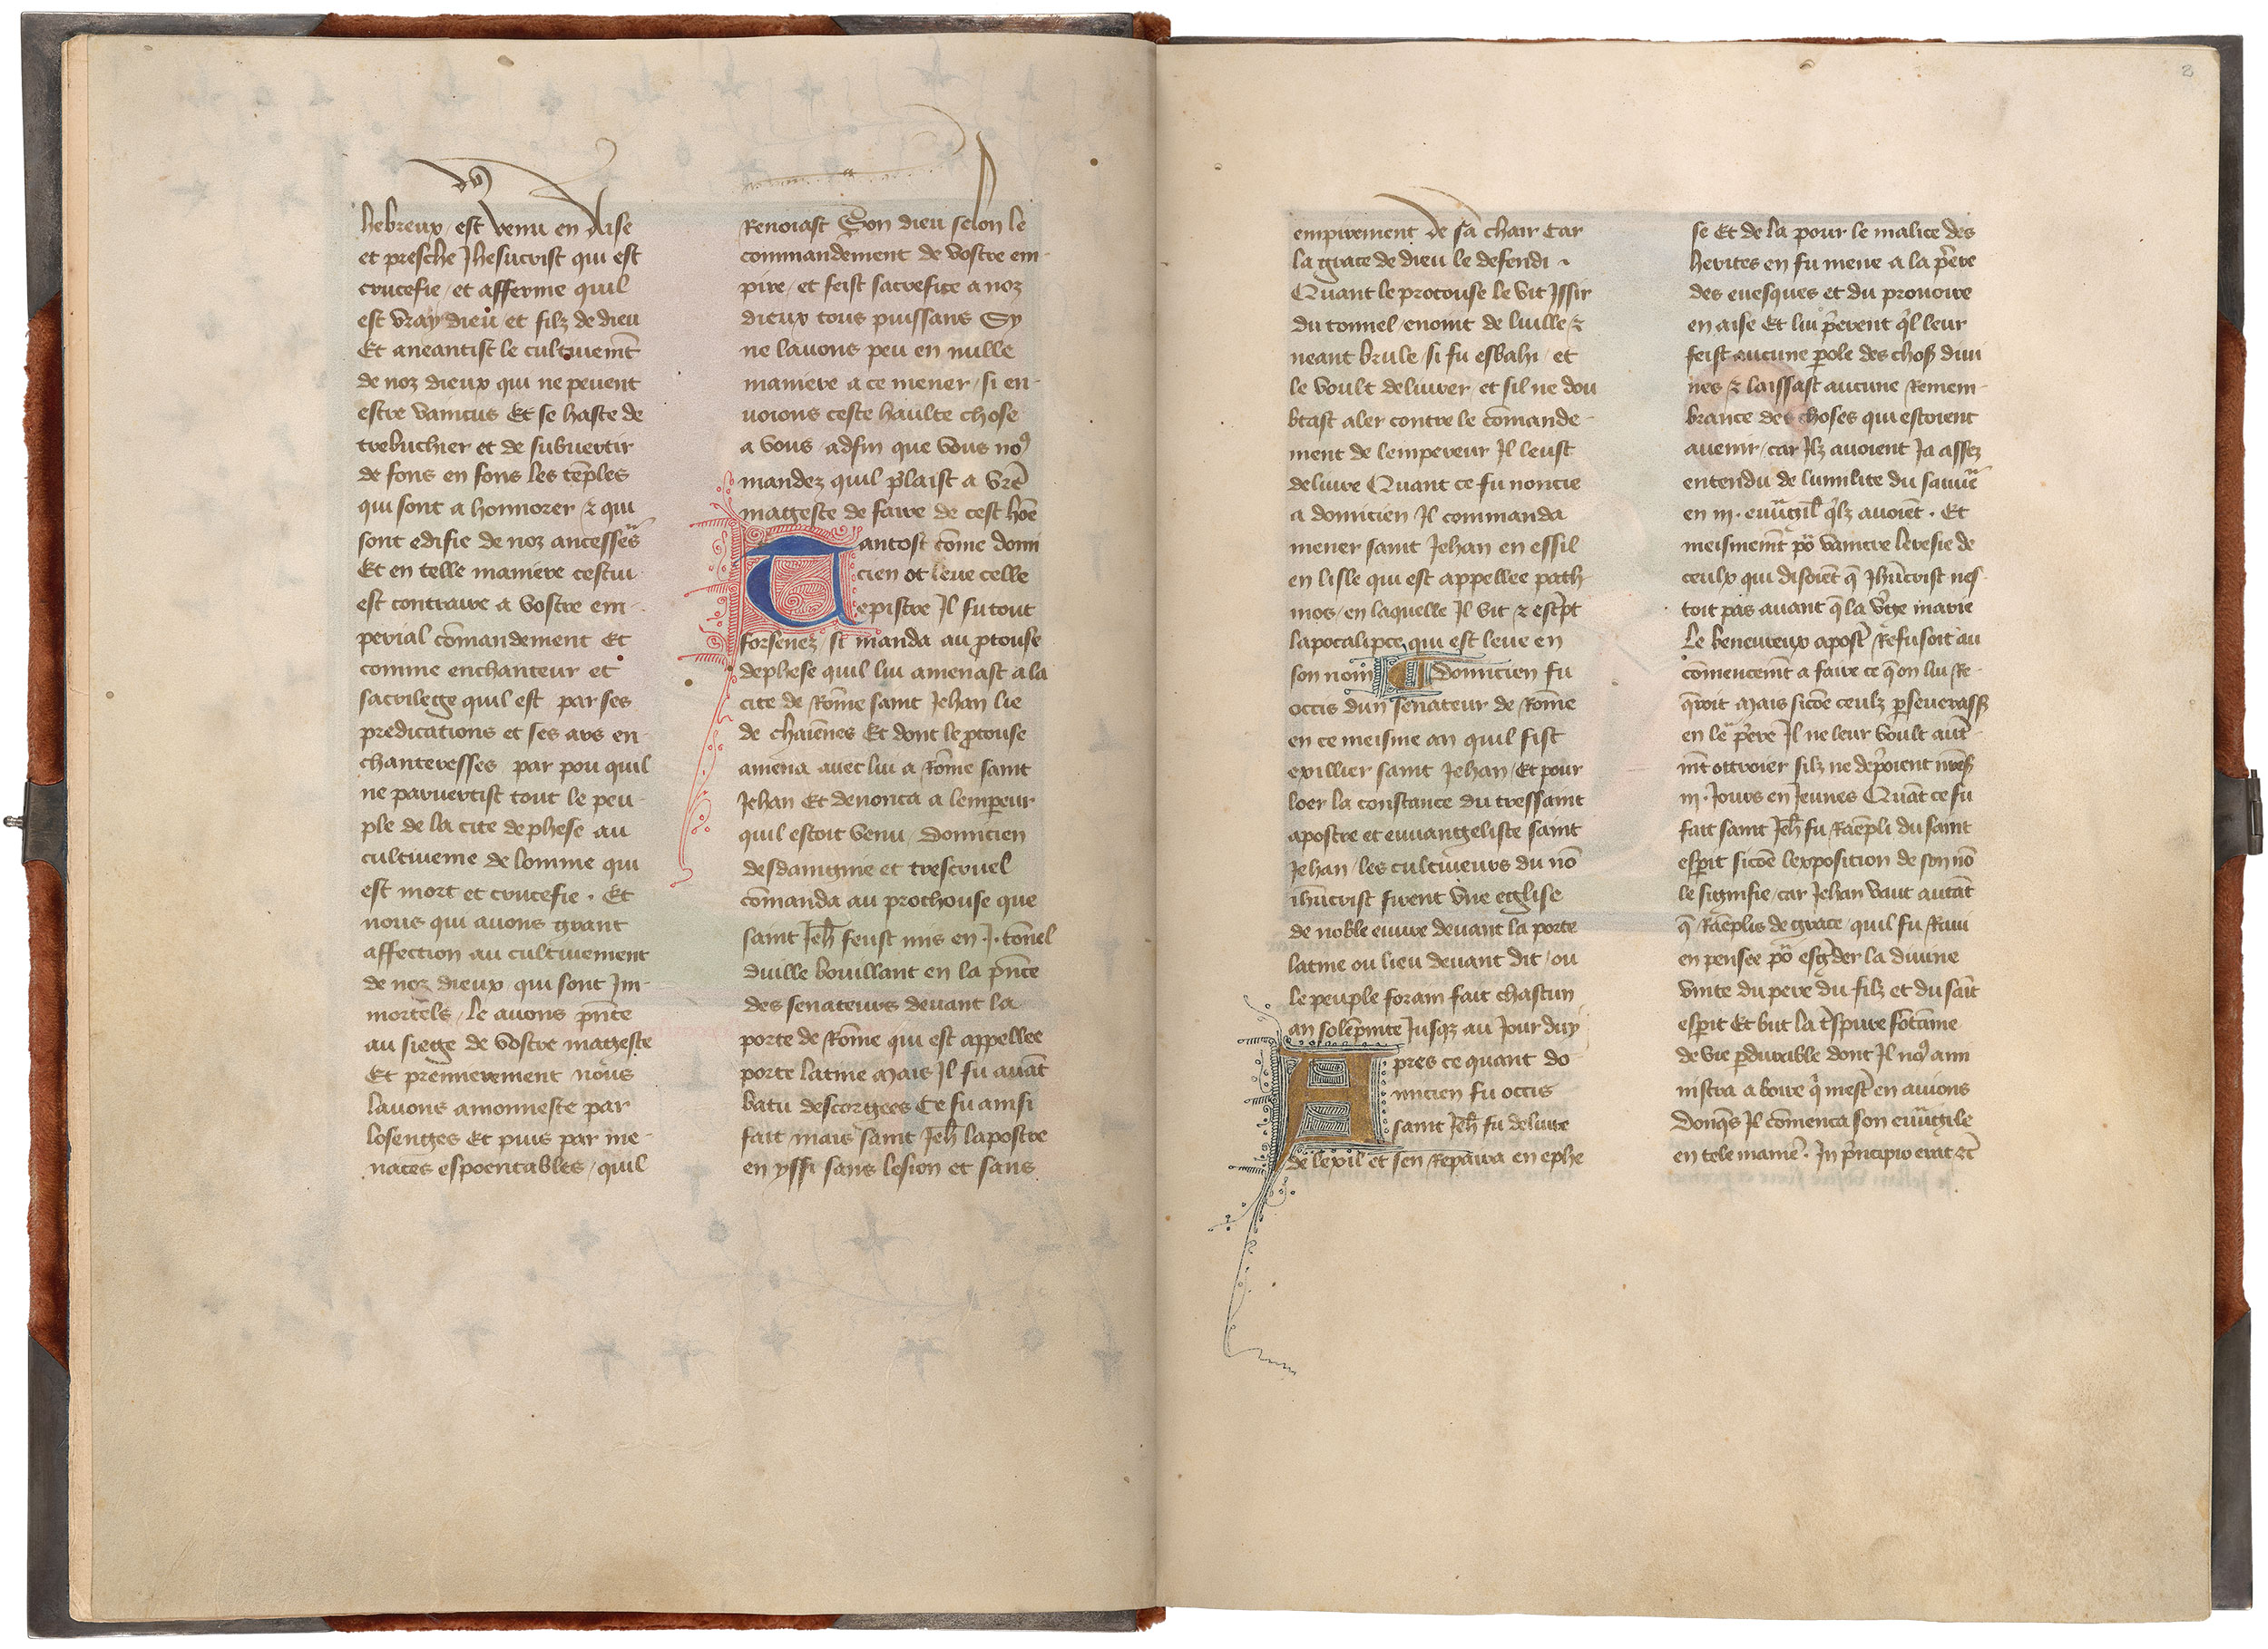 hebreux est venu en Aise
et presche Jhesucrist qui est
crucefie et afferme quil
est vray dieu et filz de dieu
Et aneantist le cultiuemt̄
de noz dieux qui ne peuent
estre vaincus Et se haste de
trebuchier et de subuertir
de fons en fons les tēples
qui sont a honnorer ⁊ qui
sont edifie de noz ancessēs
Et en telle maniere cestui
est contraire a vostre em-
perial cōmandement Et
comme enchanteur et
sacrilege quil est par ses
predications et ses ars en-
chanteresses par pou quil
ne paruertist tout le peu-
ple de la cite dephese au
cultiueme de lomme qui
est mort et crucefie. Et
nous qui auons grant
affection au cultiuement
de noz dieux qui sont Jm-
mortels le auons pn̄te
au siege de vostre mageste
Et premierement nous
lauons amonneste par
losenges Et puis par me-
naces espoentables quil
Renoiast Son dieu selon le
commandement de vostre em-
pire et feist sacrefice a noz
dieux tous puissans Sy
ne lauons peu en nulle
maniere a ce mener si en-
uoions ceste haulte chose
a vous adfin que vous no9
mandez quil plaist a vrē
mageste de faire de cest hōe
Tantost cōme domi
cien ot leue celle
epistre Il fu tout
forsenez si manda au ꝓtouse
dephese quil lui amenast a la
cite de Rōme saint Jehan lie
de chaiēnes Et dont le ꝓtouse
amena auec lui a Rōme saint
Jehan Et denonca a lempeur
quil estoit venu Domicien
desdaingnie et trescruel
cōmanda au prothouse que
saint Jeh̄ feust mis en .J. tōnel
duille bouillant en la pn̄ce
des senateurs deuant la
porte de Rōme qui est appellee
porte latine Mais Il fu auāt
batu descorgees Ce fu ainsi
fait mais saint Jeh̄ lapostre
en yssi sans lesion et sans
2
empirement de sa chair Car
la grace de dieu le defendi
Quant le protouse le vit Jssir
du tonnel enoint de luille ⁊
neant brule si fu esbahi et
le voult deliurer et sil ne dou
btast aler contre le cōmande-
ment de lempereur Il leust
deliure Quant ce fu noncie
a domicien Il commanda
mener saint Jehan en essil
en lisle qui est appellee path-
mos en laquelle Il vit ⁊ escͥpt
lapocalipce qui est leue en
son nom Domicien fu
occis dun senateur de Rōme
en ce meisme an quil fist
exillier saint Jehan Et pour
loer la constance du tressaint
apostre et euuangeliste saint
Jehan les cultiueurs du nō
ihūcrist firent vne eglise
de noble euure deuant la porte
latine ou lieu deuant dit ou
le peuple forain fait chascun
an solēpnite Jusqz au Jour duy
Apres ce quant do
micien fu occis
saint Jeh̄ fu deliure
de lexil et sen Repaira en ephe
se Et de la pour le malice des
herites en fu mene a la pͥere
des euesques et du prouoire
en aise Et lui pͥerent qͥl leur
feist aucune ꝑole des choß diui
nes ⁊ laissast aucune Remem-
brance des choses qui estoient
auenir car Ilz auoient Ja assez
entendu de lumilite du sauueͬ
en .iij. euūgil̄ qͥlz auoiēt. Et
meismemt̄ po᷑ vaintre leresie de
ceulx qui disoiēt q̄ Jhūcrist nes-
toit pas auant q̄ la v̓ge marie
Le beneureux apost̓ Refusoit au
cōmencemt̄ a faire ce q̄ on lui Re-
q̄roit Mais sicōe ceulz ꝑseuerasß
en leͬ pͥere Il ne leur voult aut̓-
mt̄ ottroier silz ne dep̓oient
iij. Jours en Jeunes Quāt ce fu
fait saint Jeh̄ fu Raēpli du saint
esperit sicōe lexposition de son nō
le signifie car Jehan vaut autāt
q̄ Raēplis de grace quil fu Raui
en pensee po᷑ esgͣder la diuine
vnite du pere du filz et du saīt
esperit Et but la tͤspure fōtaine
de vie ꝑdurable dont Il no9 ami
nistra a boire qͥ mest̓ en auions
Donqs̄ Il cōmenca son euūgile
en tele manie᷑. In pͥncipio erat ⁊c̄